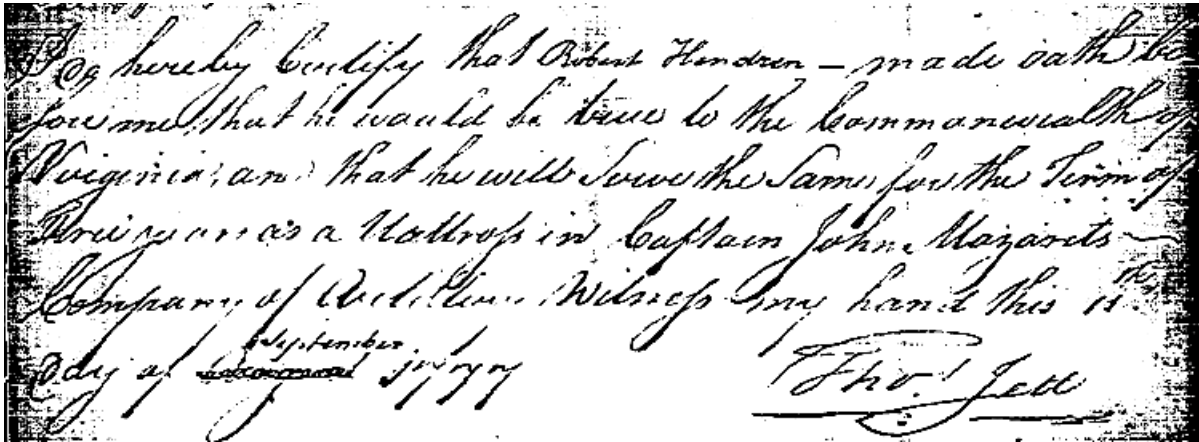 I do hereby Certify that Robert Hendren — made oath be
fore me, that he would be true to the Commonwealth of
Virginia, and that he will Serve the Same for the Term of
Three years as a Mattross in Captain John Mazarets
Company of Artillery Witness my hand this 15th
day of September 1777
Thos. Jett